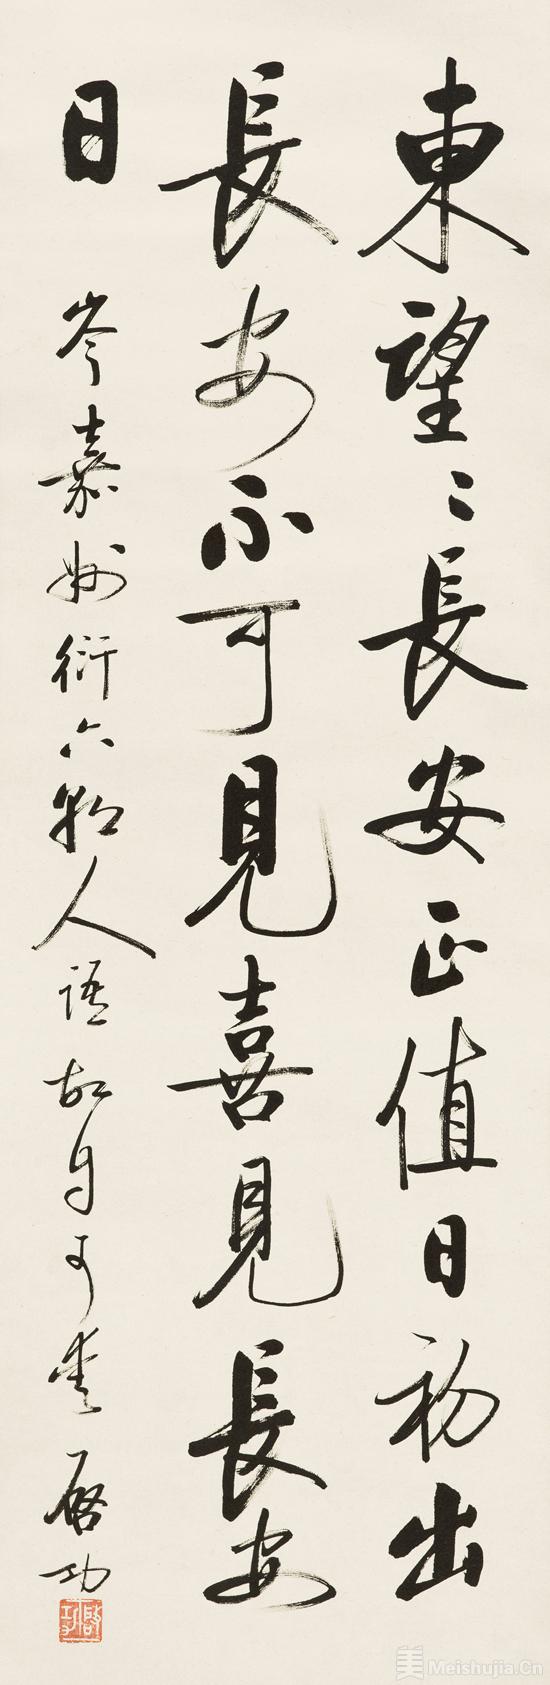 東望〻長安正值日初出
長安不可見喜見長安
日 岑嘉州衍六朝人語故自可愛 啓功
啓功
美 Meishujia.Cn